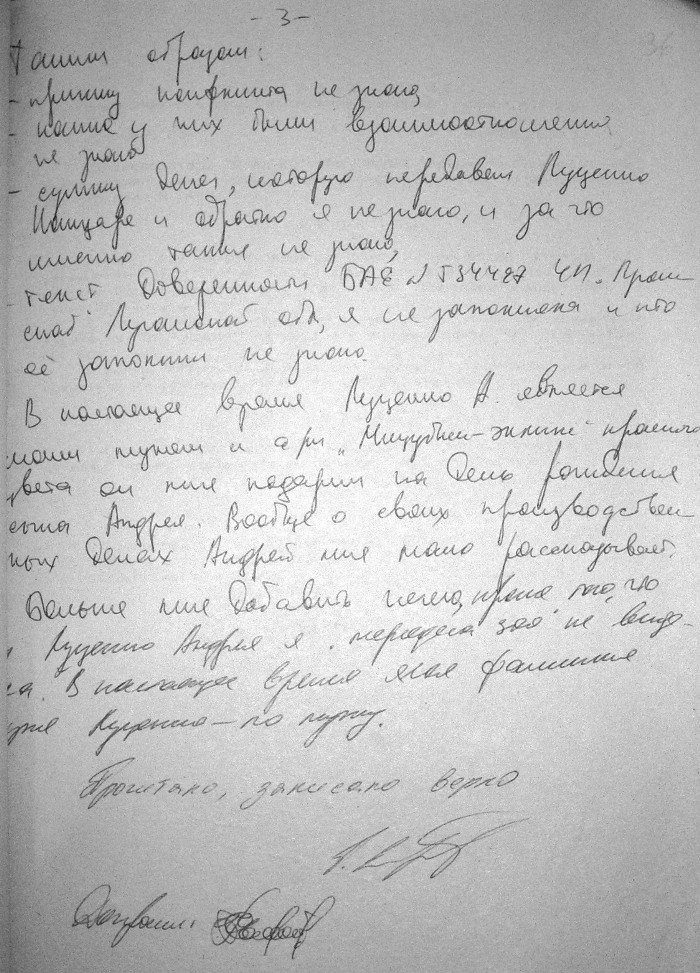 - 3 -
36
Таким образом:
- причину конфликта не знаю
- какие у них были взаимоотношения
не знаю
- сумму денег, которую передавал Луценко
и обратно я не знаю, и за что
именно также не знаю,
- текст Доверенности БАЕ № 534427
я не заполняла и кто
её заполнил не знаю.
В настоящее время Луценко А. является
моим мужем и а/м „Мицубиси- красного
цвета он мне подарил на День рождения
сына Андрея. Вообще о своих производствен-
ных делах Андрей мне мало рассказывает.
Больше мне добавить нечего, кроме того, что
Луценко Андрея я не видо-
ла. В настоящее время моя фамилия
уже Луценко — по мужу.
Прочитано, записано верно
Допросил: